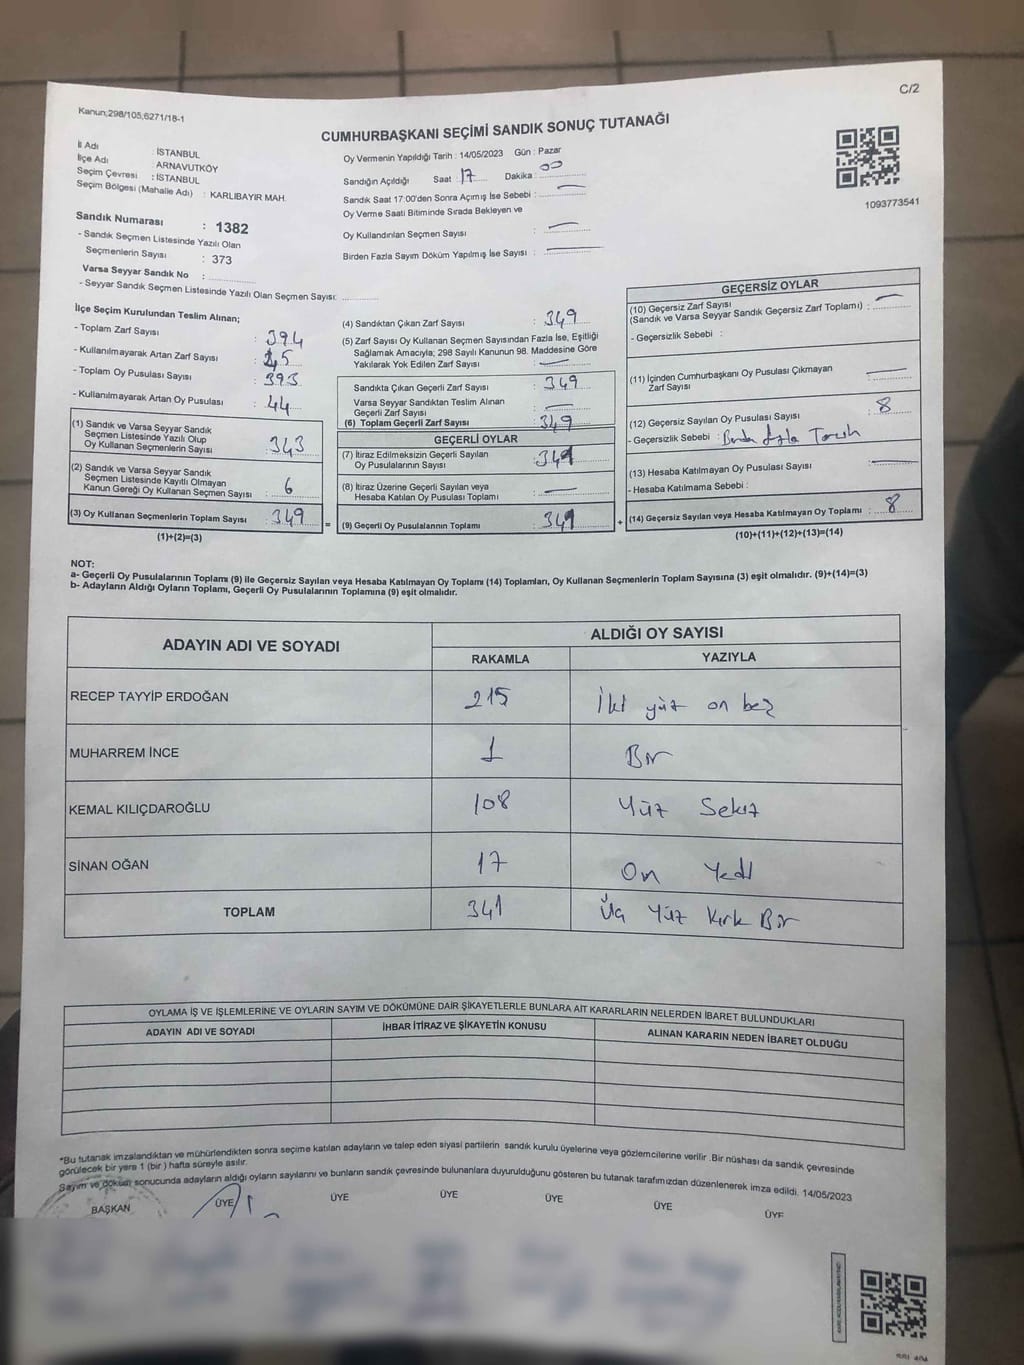 C/2
Kanun;298/105,6271/18-1
CUMHURBAŞKANI SEÇİMİ SANDIK SONUÇ TUTANAĞI
İl Adı İSTANBUL
İlçe Adı ARNAVUTKÖY
Seçim Çevresi : İSTANBUL
Seçim Bölgesi (Mahalle Adı) : KARLIBAYIR MAH.
Oy Vermenin Yapıldığı Tarih : 14/05/2023 Gün : Pazar
Sandığın Açıldığı Saat 17 Dakika : 00
Sandık Saat 17:00'den Sonra Açımış İse Sebebi : —
Oy Verme Saati Bitiminde Sırada Bekleyen ve
Oy Kullandırılan Seçmen Sayısı : —
Birden Fazla Sayım Döküm Yapılmış İse Sayısı : —
1093773541
Sandık Numarası : 1382
- Sandık Seçmen Listesinde Yazılı Olan
Seçmenlerin Sayısı : 373
Varsa Seyyar Sandık No :
- Seyyar Sandık Seçmen Listesinde Yazılı Olan Seçmen Sayısı:
İlçe Seçim Kurulundan Teslim Alınan;
- Toplam Zarf Sayısı : 394
- Kullanılmayarak Artan Zarf Sayısı : 45
- Toplam Oy Pusulası Sayısı : 393
- Kullanılmayarak Artan Oy Pusulası : 44
(1) Sandık ve Varsa Seyyar Sandık
Seçmen Listesinde Yazılı Olup
Oy Kullanan Seçmenlerin Sayısı : 343
(2) Sandık ve Varsa Seyyar Sandık
Seçmen Listesinde Kayıtlı Olmayan
Kanun Gereği Oy Kullanan Seçmen Sayısı : 6
(3) Oy Kullanan Seçmenlerin Toplam Sayısı : 349
(1)+(2)=(3)
=
(4) Sandıktan Çıkan Zarf Sayısı : 349
(5) Zarf Sayısı Oy Kullanan Seçmen Sayısından Fazla İse, Eşitliği
Sağlamak Amacıyla; 298 Sayılı Kanunun 98. Maddesine Göre
Yakılarak Yok Edilen Zarf Sayısı : —
Sandıkta Çıkan Geçerli Zarf Sayısı : 349
Varsa Seyyar Sandıktan Teslim Alınan
Geçerli Zarf Sayısı : —
(6) Toplam Geçerli Zarf Sayısı : 349
GEÇERLİ OYLAR
(7) İtiraz Edilmeksizin Geçerli Sayılan
Oy Pusulalarının Sayısı : 341
(8) İtiraz Üzerine Geçerli Sayılan veya
Hesaba Katılan Oy Pusulası Toplamı : —
(9) Geçerli Oy Pusulalarının Toplamı : 341
+
GEÇERSİZ OYLAR
(10) Geçersiz Zarf Sayısı
(Sandık ve Varsa Seyyar Sandık Geçersiz Zarf Toplamı) : —
- Geçersizlik Sebebi :
(11) İçinden Cumhurbaşkanı Oy Pusulası Çıkmayan
Zarf Sayısı : —
(12) Geçersiz Sayılan Oy Pusulası Sayısı : 8
- Geçersizlik Sebebi :
(13) Hesaba Katılmayan Oy Pusulası Sayısı : —
- Hesaba Katılmama Sebebi :
(14) Geçersiz Sayılan veya Hesaba Katılmayan Oy Toplamı : 8
(10)+(11)+(12)+(13)=(14)
NOT:
a- Geçerli Oy Pusulalarının Toplamı (9) ile Geçersiz Sayılan veya Hesaba Katılmayan Oy Toplamı (14) Toplamları, Oy Kullanan Seçmenlerin Toplam Sayısına (3) eşit olmalıdır. (9)+(14)=(3)
b- Adayların Aldığı Oyların Toplamı, Geçerli Oy Pusulalarının Toplamına (9) eşit olmalıdır.
ADAYIN ADI VE SOYADI ALDIĞI OY SAYISI
RAKAMLA YAZIYLA
RECEP TAYYİP ERDOĞAN 215 İki yüz on beş
MUHARREM İNCE 1 Bir
KEMAL KILIÇDAROĞLU 108 Yüz Sekiz
SİNAN OĞAN 17 On Yedi
TOPLAM 341 Üç Yüz Kırk Bir
OYLAMA İŞ VE İŞLEMLERİNE VE OYLARIN SAYIM VE DÖKÜMÜNE DAİR ŞİKAYETLERLE BUNLARA AİT KARARLARIN NELERDEN İBARET BULUNDUKLARI
ADAYIN ADI VE SOYADI İHBAR İTİRAZ VE ŞİKAYETİN KONUSU ALINAN KARARIN NEDEN İBARET OLDUĞU
*Bu tutanak imzalandıktan ve mühürlendikten sonra seçime katılan adayların ve talep eden siyasi partilerin sandık kurulu üyelerine veya gözlemcilerine verilir .Bir nüshası da sandık çevresinde
görülecek bir yere 1 (bir ) hafta süreyle asılır.
Sayım ve döküm sonucunda adayların aldığı oyların sayılarını ve bunların sandık çevresinde bulunanlara duyurulduğunu gösteren bu tutanak tarafımızdan düzenlenerek imza edildi. 14/05/2023
BAŞKAN ÜYE ÜYE ÜYE ÜYE ÜYE ÜYE